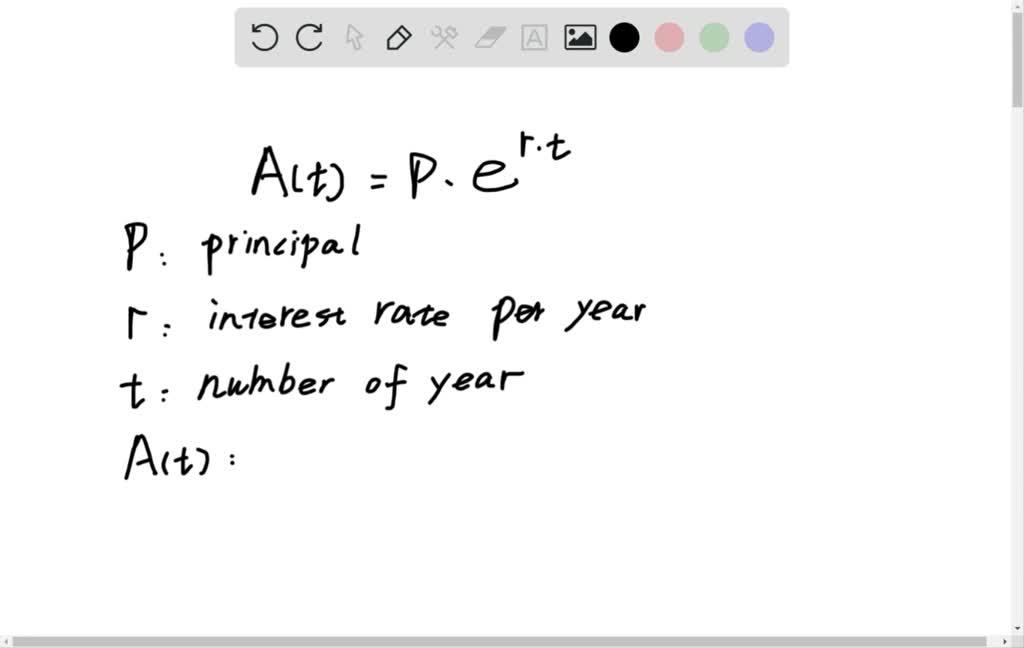 A(t) = P. e^{r.t}
P: principal
r: interest rate per year
t: number of year
A(t):